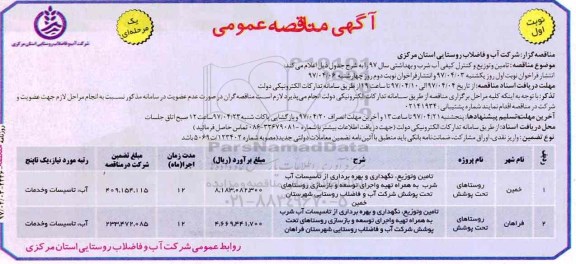 آگهی مناقصه عمومی
نوبت اول
یک مرحله‌ای
شرکت آب و فاضلاب روستایی استان مرکزی
مناقصه گزار: شرکت آب و فاضلاب روستایی استان مرکزی
موضوع مناقصه: تامین وتوزیع و کنترل کیفی آب شرب و بهداشتی سال ۹۷ به شرح جدول ذیل اعلام می کند
انتشار فراخوان نوبت اول روز یکشنبه ۹۷/۰۴/۰۳ و انتشار فراخوان نوبت دوم روز چهارشنبه ۹۷/۰۴/۰۶
مهلت دریافت اسناد مناقصه: از تاریخ ۹۷/۰۴/۰۴ الی ۹۷/۰۴/۱۰ تا ساعت ۱۹ از طریق سامانه تدارکات الکترونیکی دولت
تذکر: با توجه به اینکه کلیه مراحل برگزاری مناقصه از طریق سامانه تدارکات الکترونیکی دولت انجام می پذیرد لازم است مناقصه گران در صورت عدم عضویت در سامانه مذکور نسبت به انجام مراحل لازم جهت عضویت و
شرکت در مناقصه اقدام نمایند شماره پشتیبانی ۰۲۱۴۱۹۳۴
آخرین مهلت تسلیم پیشنهادها: پنجشنبه ۹۷/۰۴/۲۱ تا ساعت ۱۳ و آخرین مهلت انصراف ۹۷/۰۴/۲۰ و بازگشایی پاکات شنبه ۹۷/۰۴/۲۳ ساعت ۱۲ صبح اتاق جلسات
محل دریافت اسناد: از طریق سامانه تدارکات الکترونیکی دولت (جهت دریافت اطلاعات بیشتر با شماره ۰۸۶-۳۳۶۷۹۰۸۱ تماس حاصل فرمائید)
ردیف نام شهر نام پروژه شرح مبلغ برآورد (ریال) مدت زمان اجرا(ماه) مبلغ تضمین شرکت در مناقصه رتبه مورد نیاز، یک تا پنج
۱ خمین روستاهای تحت پوشش تامین وتوزیع، نگهداری و بهره برداری از تاسیسات آب شرب به همراه تهیه واجرای توسعه و بازسازی روستاهای تحت پوشش شرکت آب و فاضلاب روستایی شهرستان خمین ۸,۱۸۳,۰۸۲,۳۰۰ ۱۲ ۴۰۹,۱۵۴,۱۱۵ آب، تاسیسات وخدمات
۲ فراهان روستاهای تحت پوشش تامین وتوزیع، نگهداری و بهره برداری از تاسیسات آب شرب به همراه تهیه واجرای توسعه و بازسازی روستاهای تحت پوشش شرکت آب و فاضلاب روستایی شهرستان فراهان ۴,۶۶۹,۴۴۱,۷۰۰ ۱۲ ۲۳۳,۴۷۲,۰۸۵ آب، تاسیسات وخدمات
روابط عمومی شرکت آب و فاضلاب روستایی استان مرکزی
ParsNamadData
۰۲۱-۸۸۳۴۹۶۷۰-۵